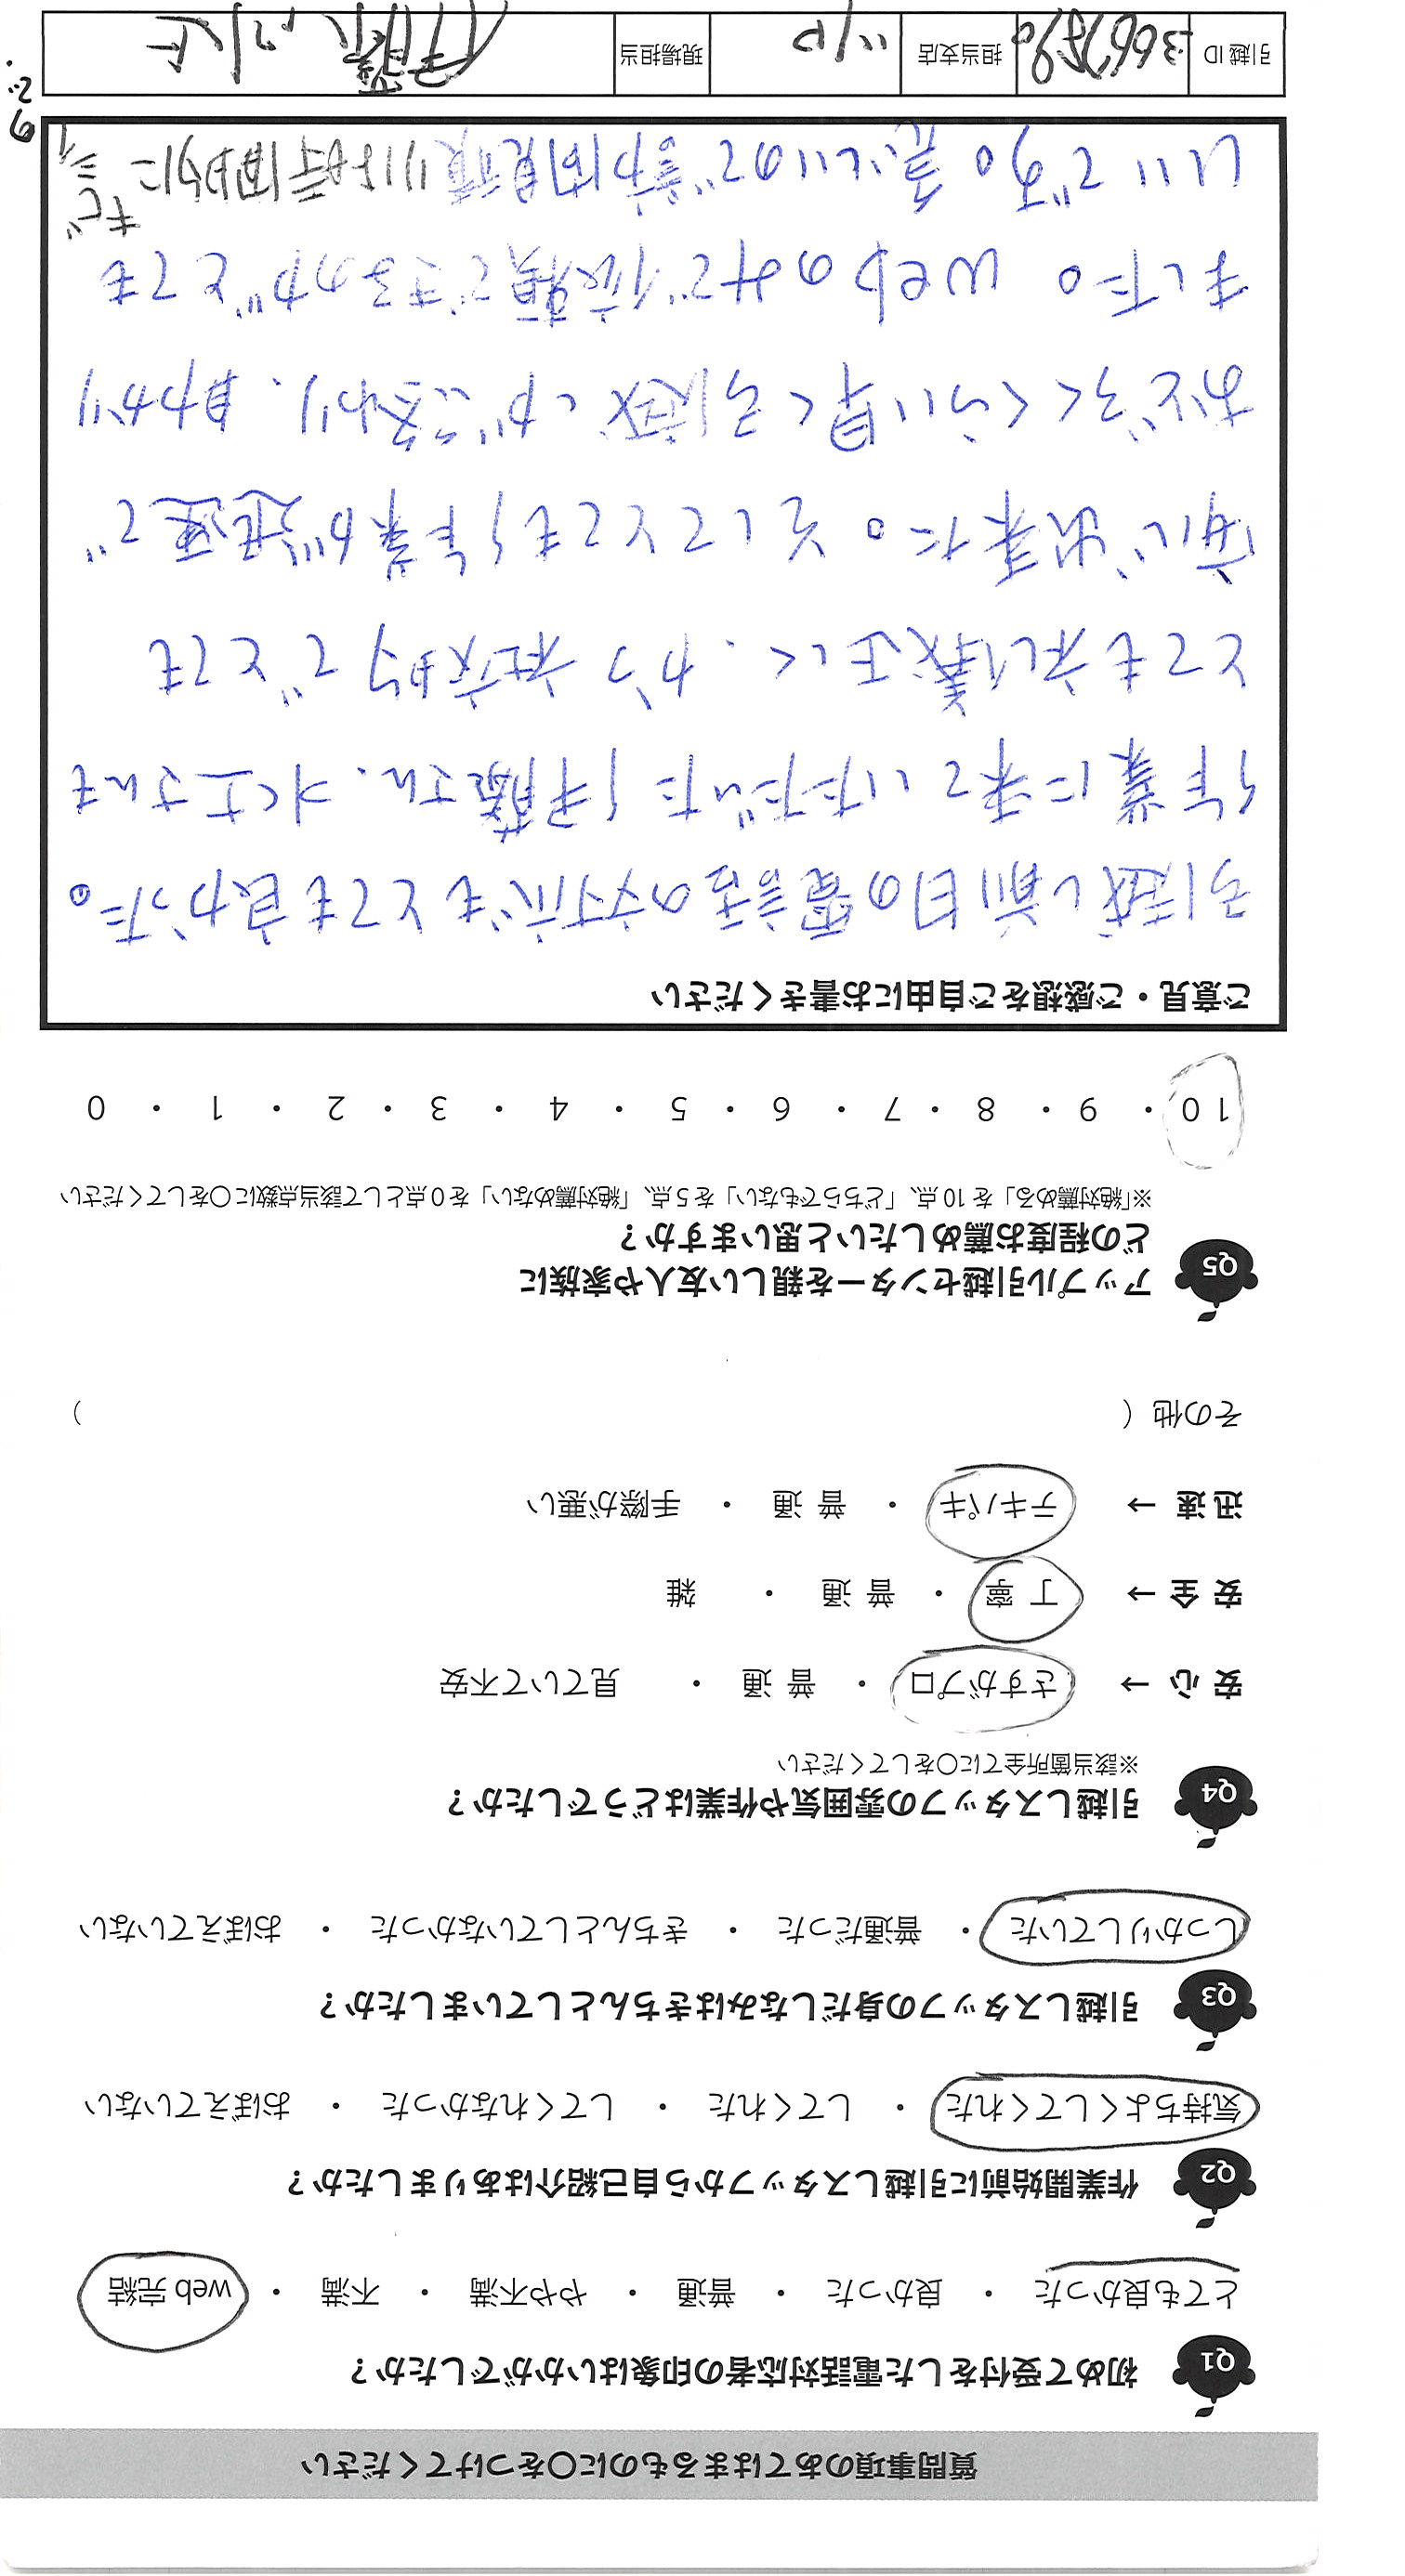 質問事項のあてはまるものに○をつけてください
Q1 初めて受付をした電話対応者の印象はいかがでしたか？
とても良かった ・ 良かった ・ 普通 ・ やや不満 ・ 不満 ・ web 完結
Q2 作業開始前に引越しスタッフから自己紹介はありましたか？
気持ちよくしてくれた ・ してくれた ・ してくれなかった ・ おぼえていない
Q3 引越しスタッフの身だしなみはきちんとしていましたか？
しっかりしていた ・ 普通だった ・ きちんとしていなかった ・ おぼえていない
Q4 引越しスタッフの雰囲気や作業はどうでしたか？
※該当箇所全てに○をしてください
安 心 → さすがプロ ・ 普 通 ・ 見ていて不安
安 全 → 丁 寧 ・ 普 通 ・ 雑
迅 速 → テキパキ ・ 普 通 ・ 手際が悪い
その他（ ）
Q5 アップル引越センターを親しい友人や家族に
どの程度お薦めしたいと思いますか？
※「絶対薦める」を 10 点、「どちらでもない」を 5 点、「絶対薦めない」を 0 点として該当点数に○をしてください
10 ・ 9 ・ 8 ・ 7 ・ 6 ・ 5 ・ 4 ・ 3 ・ 2 ・ 1 ・ 0
ご意見・ご感想をご自由にお書きください
引越し前日の電話の対応もとても良かった。
作業に来ていただいた伊藤さん、水上さんも
とても礼儀正しく、かつ社交的でとても
安心出来た。そしてとても作業が迅速で
おどろくくらい早く引越しが終わり、助かり
ました。webのみで依頼できるのがとても
いいです。急いいので訪問見積りは時間的に
引越 ID 担当支店 現場担当 伊藤 水上